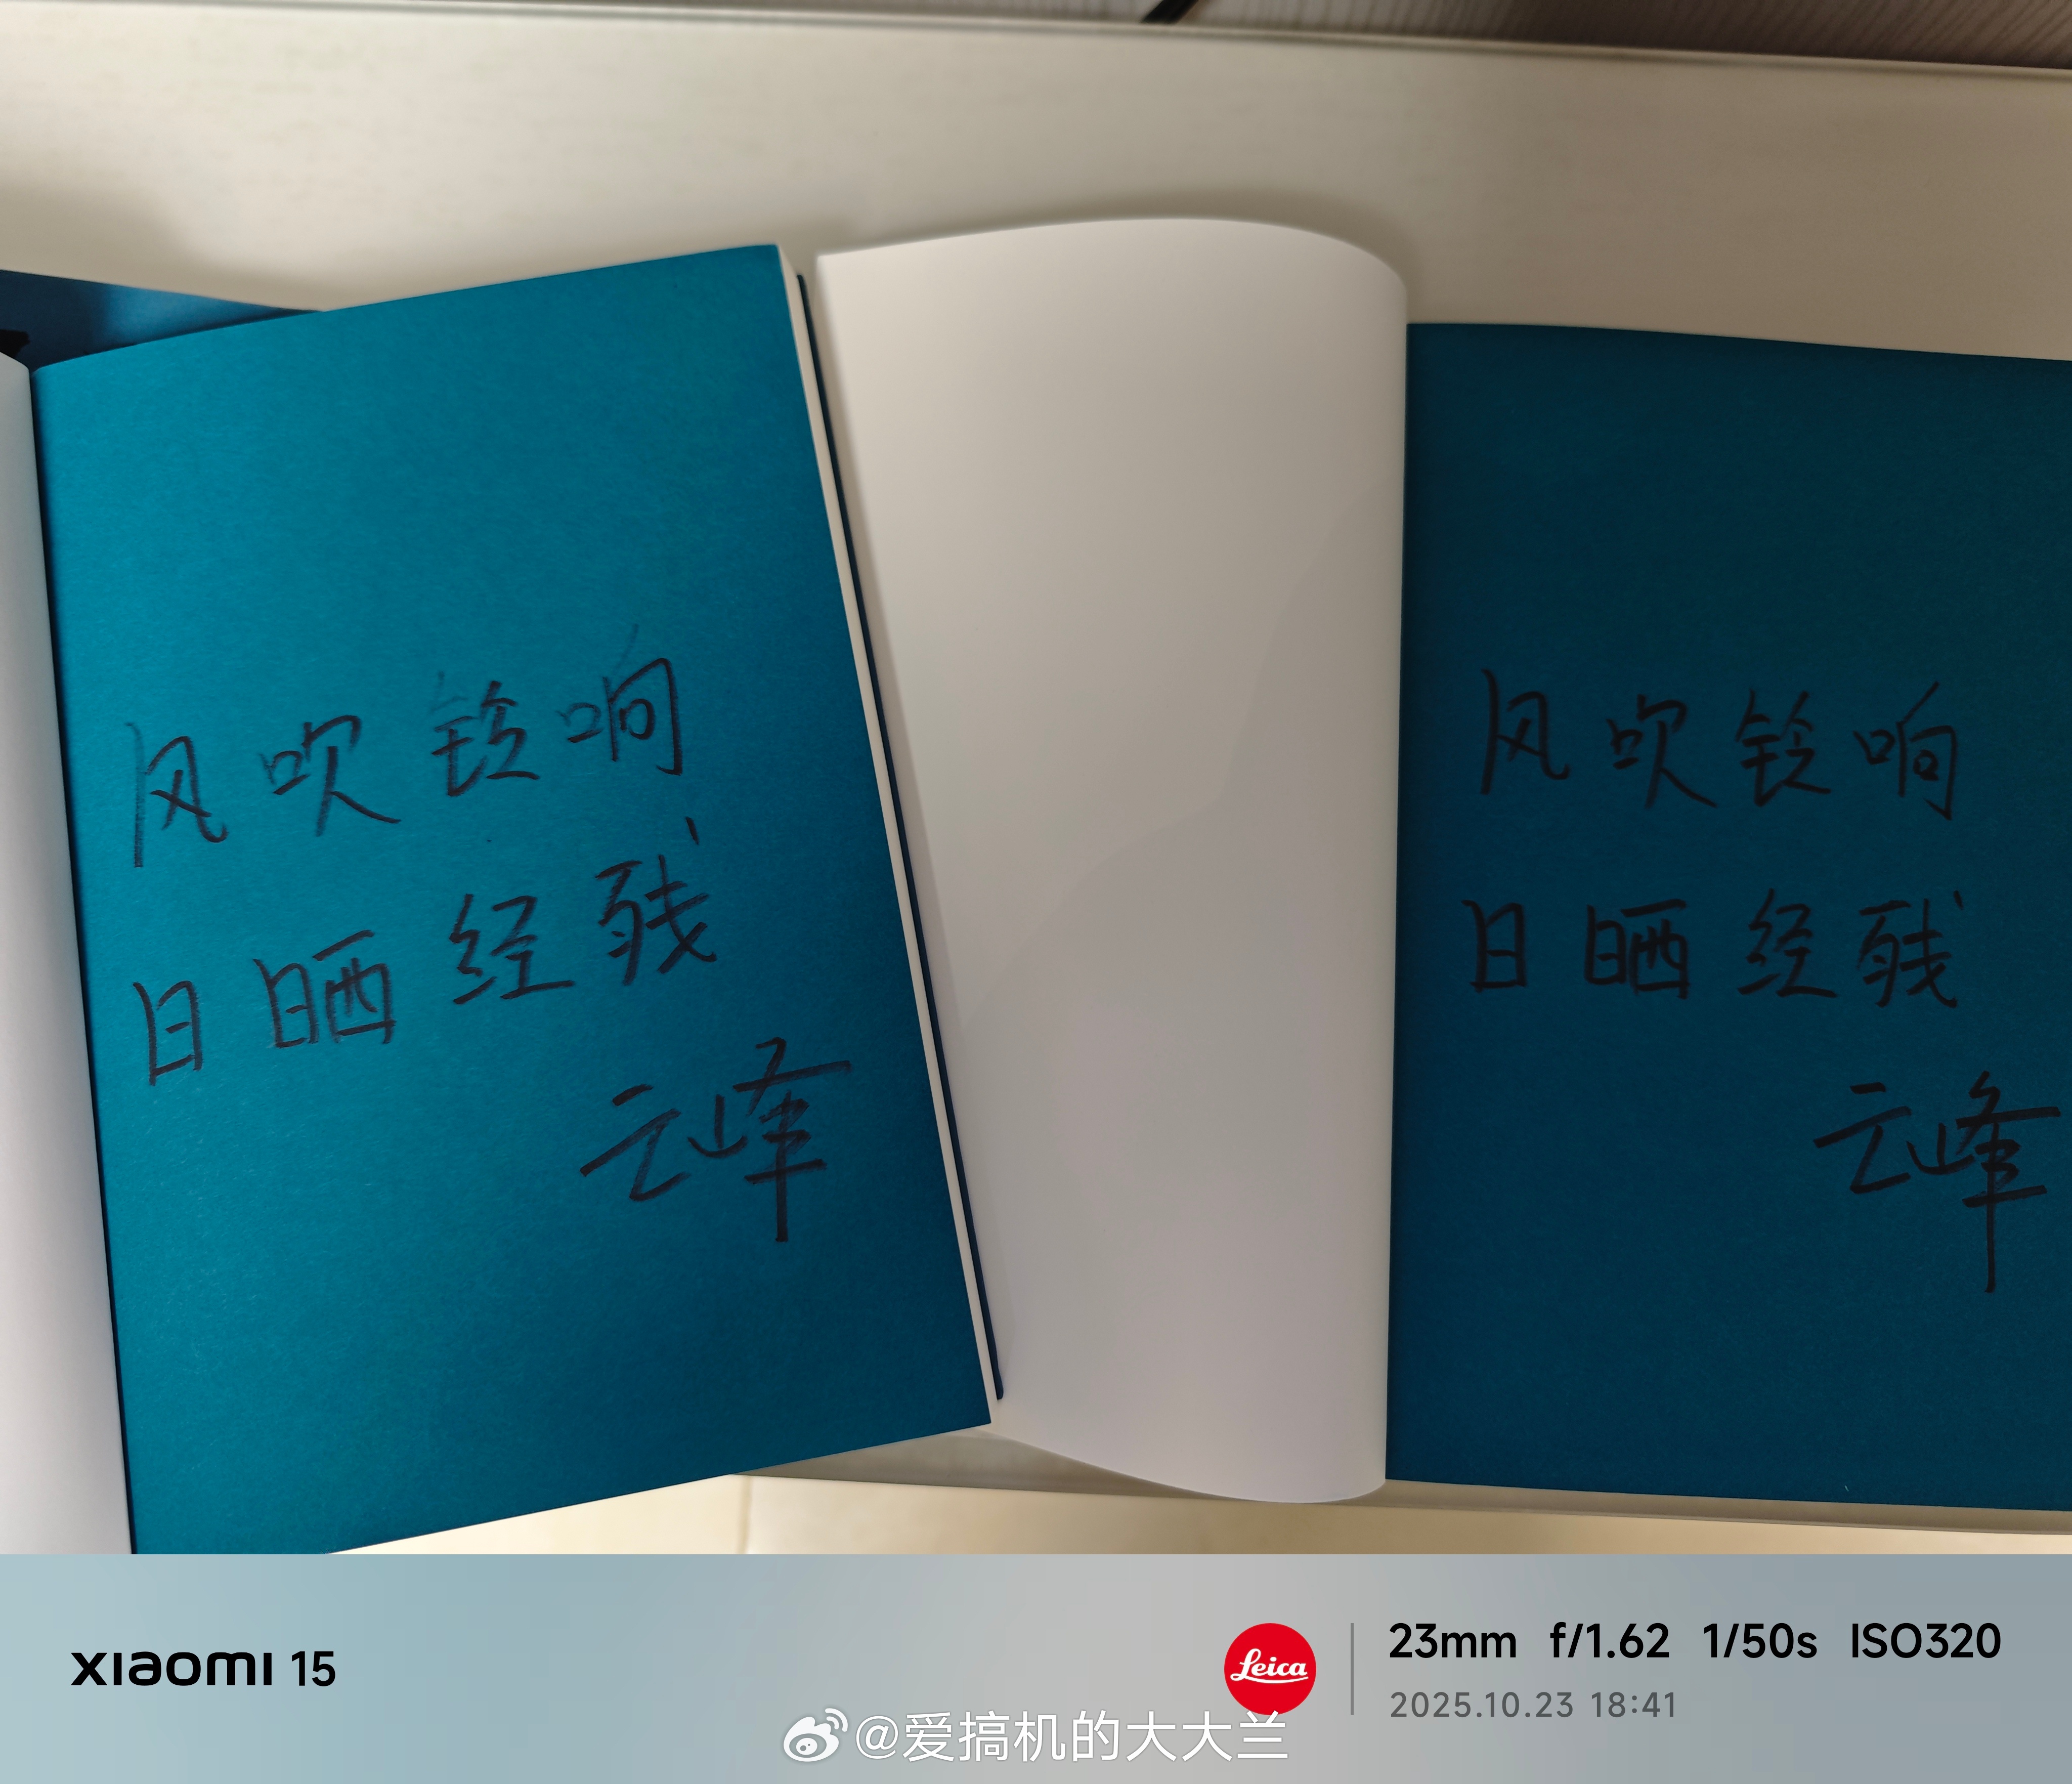 风吹铃响
日晒经残
云峰
风吹铃响
日晒经残
云峰
xiaomi 15
Leica
23mm f/1.62 1/50s ISO320
2025.10.23 18:41
@爱搞机的大大兰